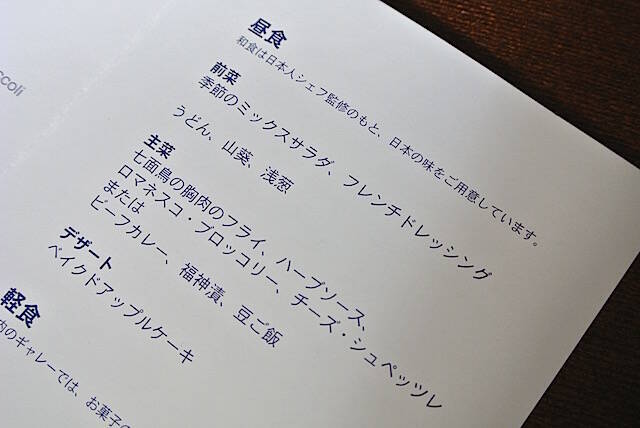 ccoli
昼食
和食は日本人シェフ監修のもと、日本の味をご用意しています。
前菜
季節のミックスサラダ、フレンチドレッシング
うどん、山葵、浅葱
主菜
七面鳥の胸肉のフライ、ハーブソース、
ロマネスコ・ブロッコリー、チーズ・シュペッツレ
または
ビーフカレー、福神漬、豆ご飯
デザート
ベイクドアップルケーキ
軽食
内のギャレーでは、お菓子の